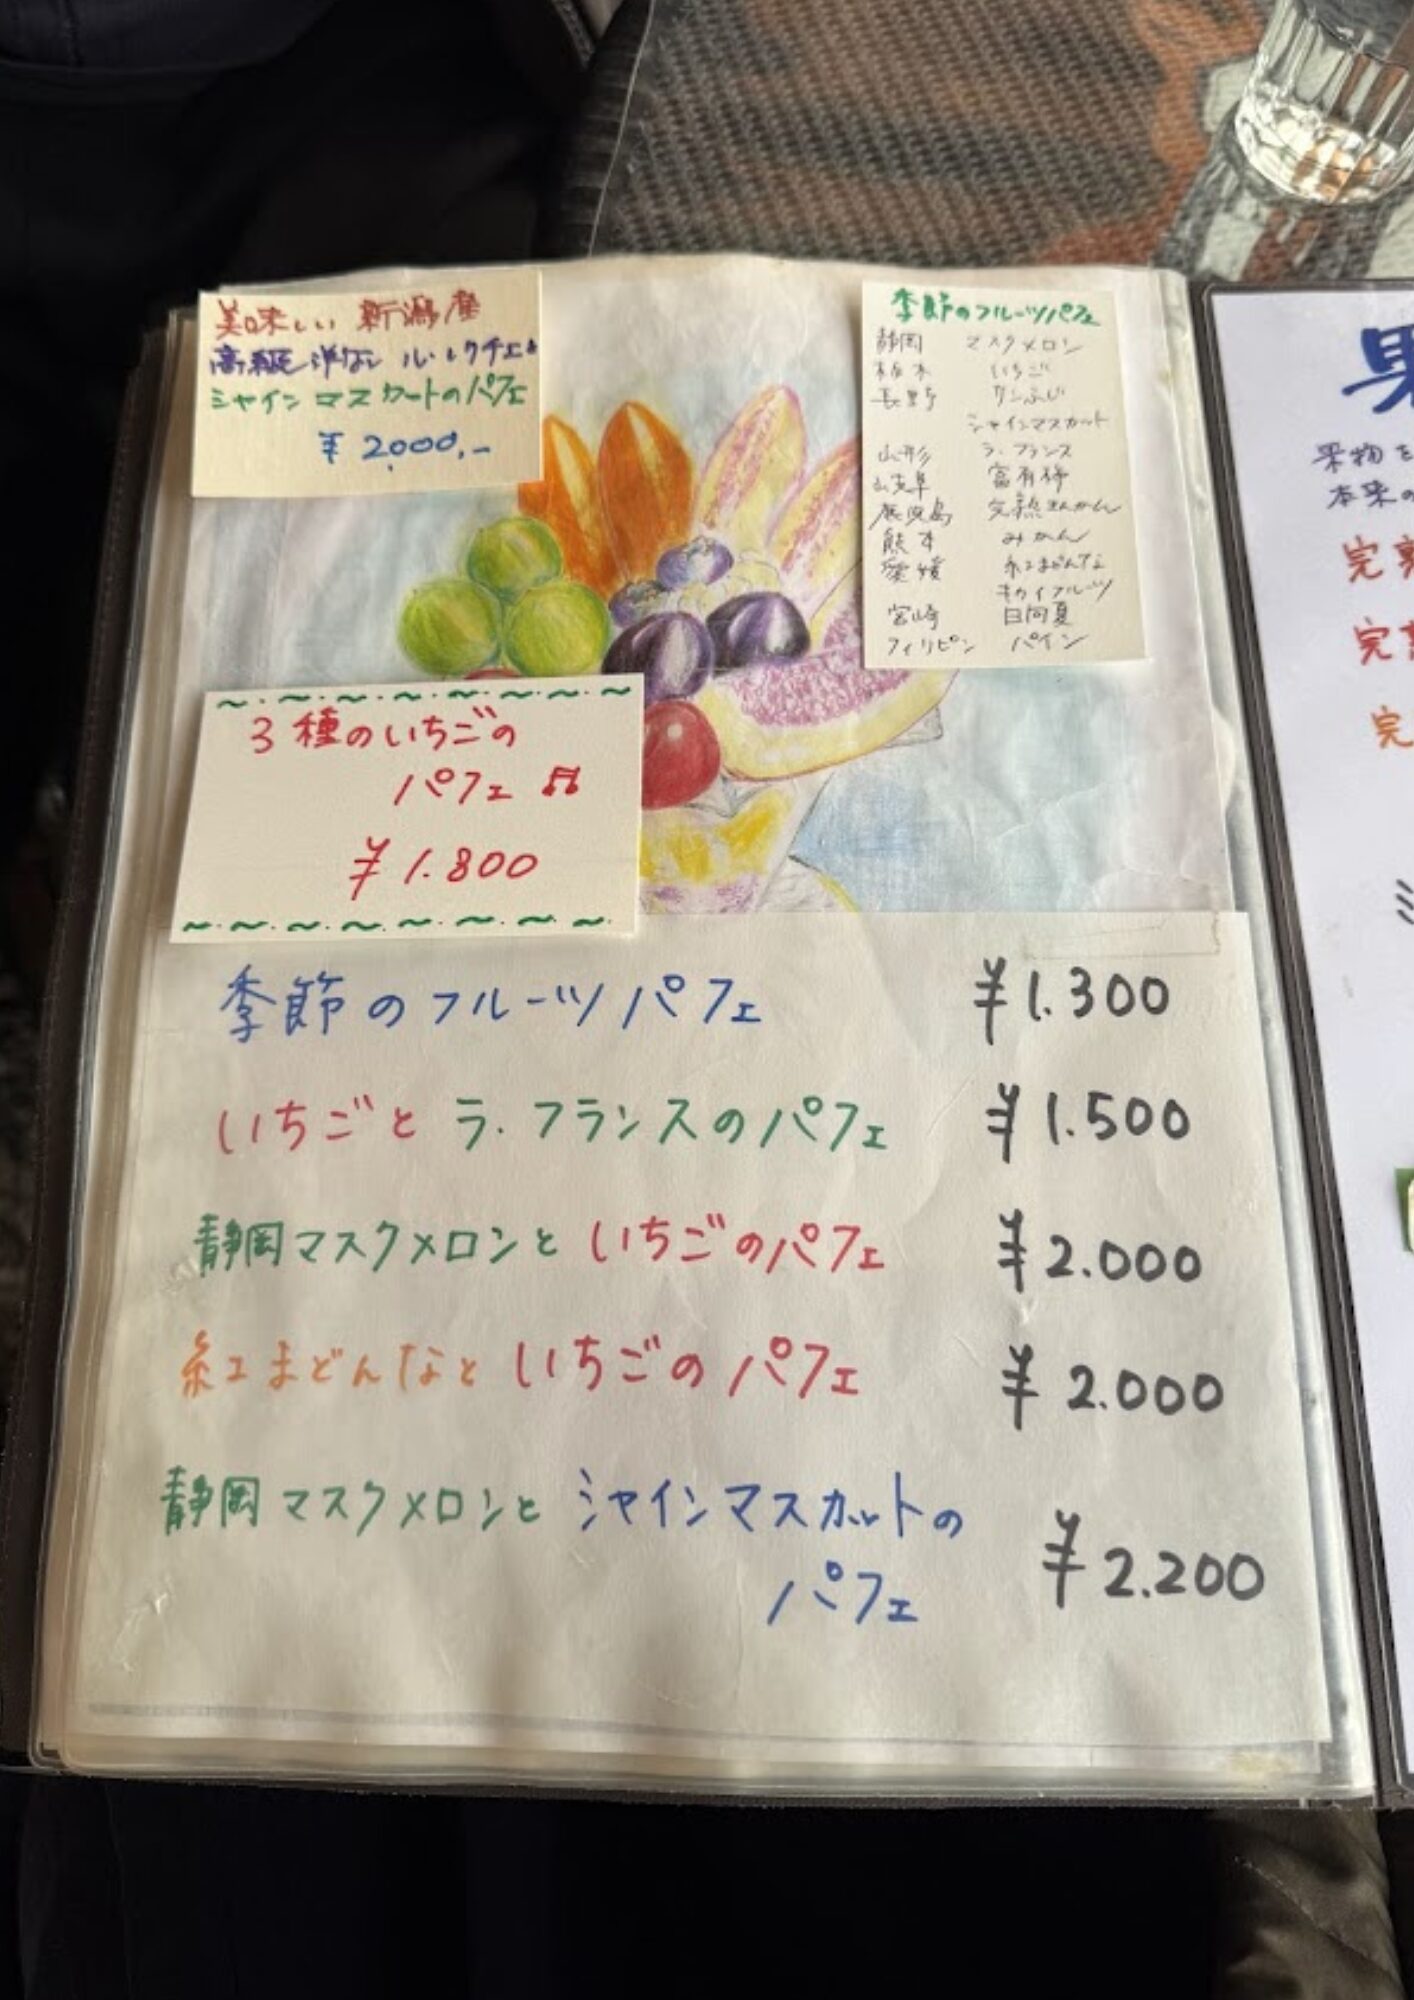 美味しい 新潟産
高級洋なし ル・レクチェと
シャインマスカットのパフェ
¥2,000,-
季節のフルーツパフェ
静岡 マスクメロン
栃木 いちご
長野 サンふじ
シャインマスカット
山形 ラ・フランス
岐阜 富有柿
鹿児島 完熟きんかん
熊本 みかん
愛媛 紅まどんな
キウイフルーツ
宮崎 日向夏
フィリピン パイン
3種のいちごの
パフェ ♬
¥1.800
季節のフルーツパフェ ¥1.300
いちごとラ・フランスのパフェ ¥1.500
静岡マスクメロンといちごのパフェ ¥2.000
紅まどんなといちごのパフェ ¥2.000
静岡マスクメロンとシャインマスカットの
パフェ ¥2.200
果物を
本来の
完
完